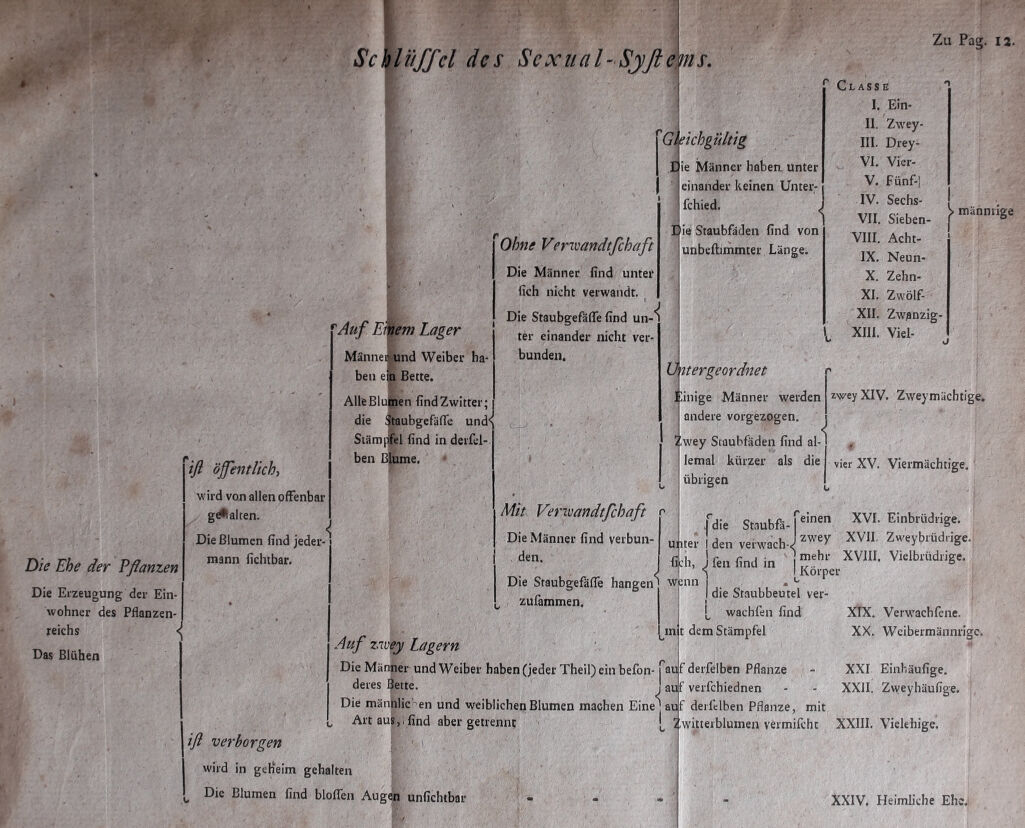 Zu Pag. 12.
Schlüſſel des Sexual-Syſtems.
Die Ehe der Pflanzen
Die Erzeugung der Ein-
wohner des Pflanzen-
reichs
Das Blühen
iſt öffentlich,
wird von allen offenbar
gehalten.
Die Blumen ſind jeder-
mann ſichtbar.
Auf Einem Lager
Männer und Weiber ha-
ben ein Bette.
Alle Blumen ſind Zwitter;
die Staubgefäſſe und
Stämpfel ſind in derſel-
ben Blume.
Ohne Verwandtſchaft
Die Männer ſind unter
ſich nicht verwandt.
Die Staubgefäſſe ſind un-
ter einander nicht ver-
bunden.
Gleichgültig
Die Männer haben unter
einander keinen Unter-
ſchied.
Die Staubfäden ſind von
unbeſtimmter Länge.
CLASSE
I. Ein-
II. Zwey-
III. Drey-
VI. Vier-
V. Fünf-
IV. Sechs-
VII. Sieben-
VIII. Acht-
IX. Neun-
X. Zehn-
XI. Zwölf-
XII. Zwanzig-
XIII. Viel-
männrige
Untergeordnet
Einige Männer werden
andere vorgezogen.
Zwey Staubfäden ſind al-
lemal kürzer als die
übrigen
zwey XIV. Zweymächtige.
vier XV. Viermächtige.
Mit Verwandtſchaft
Die Männer ſind verbun-
den.
Die Staubgefäſſe hangen
zuſammen.
unter
ſich,
wenn
die Staubfä-
den verwach-
ſen ſind in
einen XVI. Einbrüdrige.
zwey XVII. Zweybrüdrige.
mehr XVIII. Vielbrüdrige.
Körper
die Staubbeutel ver-
wachſen ſind XIX. Verwachſene.
mit dem Stämpfel XX. Weibermännrige.
Auf zwey Lagern
Die Männer und Weiber haben (jeder Theil) ein beſon-
deres Bette.
Die männlichen und weiblichen Blumen machen Eine
Art aus, ſind aber getrennt
auf derſelben Pflanze - XXI Einhäuſige.
auf verſchiednen - - XXII. Zweyhäuſige.
auf derſelben Pflanze, mit
Zwitterblumen vermiſcht XXIII. Vielehige.
iſt verborgen
wird in geheim gehalten
Die Blumen ſind bloſſen Augen unſichtbar - - - - XXIV. Heimliche Ehe.